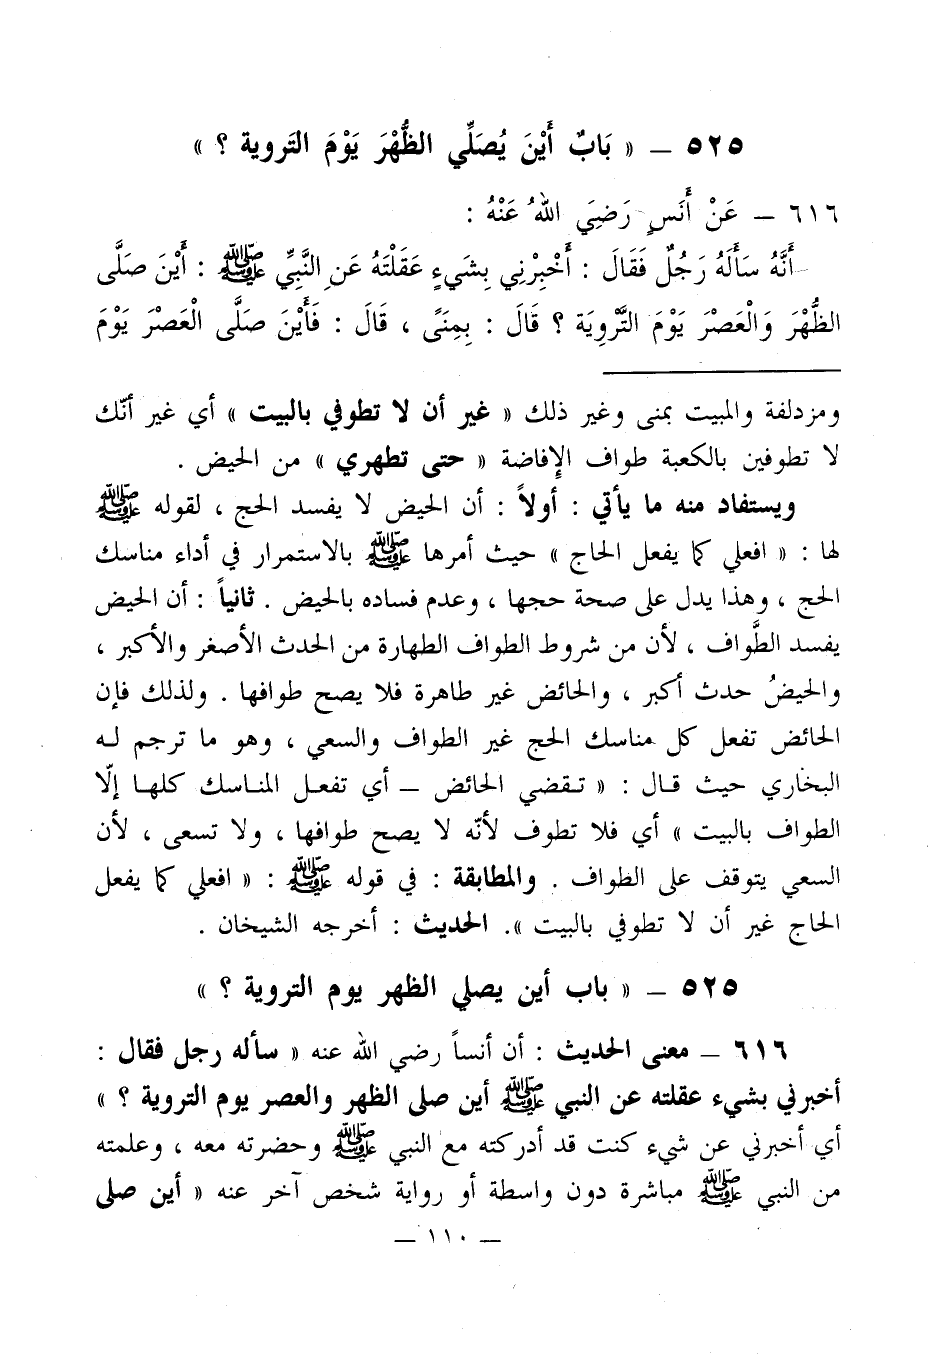 ٥٢٥ ــ « بَابٌ أَيْنَ يُصَلِّي الظُّهْرَ يَوْمَ التَروية ؟ »
٦١٦ ــ عَنْ أَنَسٍ رَضِيَ اللهُ عَنْهُ :
أَنَّهُ سَأَلَهُ رَجُلٌ فَقَالَ : أَخْبِرْنِي بِشَيءٍ عَقَلْتَهُ عَنِ النَّبِيِّ ﷺ : أَيْنَ صَلَّى
الظُّهْرَ وَالْعَصْرَ يَوْمَ التَّرْوِيَة ؟ قَالَ : بِمِنَىً ، قَالَ : فَأَيْنَ صَلَّى الْعَصْرَ يَوْمَ
ومزدلفة والمبيت بمنى وغير ذلك « غير أن لا تطوفي بالبيت » أي غير أنّك
لا تطوفين بالكعبة طواف الإفاضة « حتى تطهري » من الحيض .
ويستفاد منه ما يأتي : أولاً : أن الحيض لا يفسد الحج ، لقوله ﷺ
لها : « افعلي كما يفعل الحاج » حيث أمرها ﷺ بالاستمرار في أداء مناسك
الحج ، وهذا يدل على صحة حجها ، وعدم فساده بالحيض . ثانياً : أن الحيض
يفسد الطَّواف ، لأن من شروط الطواف الطهارة من الحدث الأصغر والأكبر ،
والحيضُ حدث أكبر ، والحائض غير طاهرة فلا يصح طوافها . ولذلك فإن
الحائض تفعل كل مناسك الحج غير الطواف والسعي ، وهو ما ترجم له
البخاري حيث قال : « تقضي الحائض ــ أي تفعل المناسك كلها إلّا
الطواف بالبيت » أي فلا تطوف لأنّه لا يصح طوافها ، ولا تسعى ، لأن
السعي يتوقف على الطواف . والمطابقة : في قوله ﷺ : « افعلي كما يفعل
الحاج غير أن لا تطوفي بالبيت ». الحديث : أخرجه الشيخان .
٥٢٥ ــ « باب أين يصلي الظهر يوم التروية ؟ »
٦١٦ ــ معنى الحديث : أن أنساً رضي الله عنه « سأله رجل فقال :
أخبرني بشيء عقلته عن النبي ﷺ أين صلى الظهر والعصر يوم التروية ؟ »
أي أخبرني عن شيء كنت قد أدركته مع النبي ﷺ وحضرته معه ، وعلمته
من النبي ﷺ مباشرة دون واسطة أو رواية شخص آخر عنه « أين صلى
ــ ١١٠ ــ